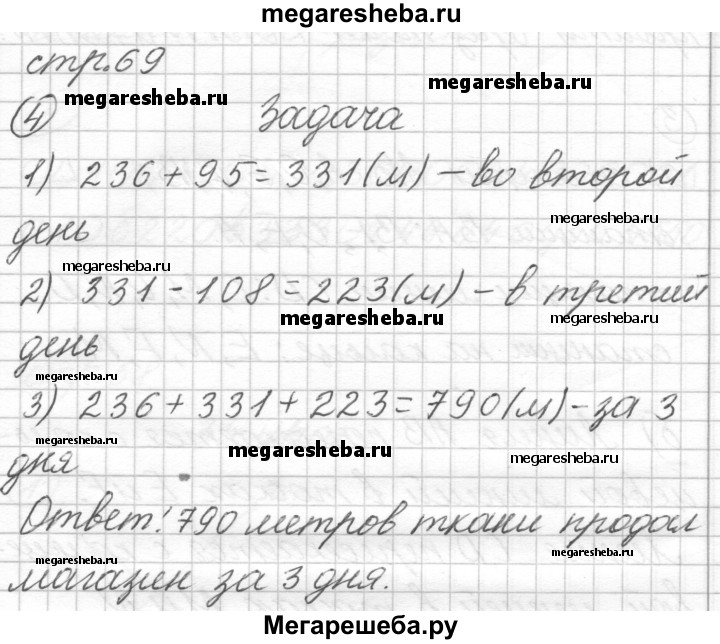 megaresheba.ru
стр.69
megaresheba.ru
megaresheba.ru
4 Задача
1) 236 + 95 = 331(м) – во второй
megaresheba.ru
день
megaresheba.ru
2) 331 - 108 = 223(м) – в третий
megaresheba.ru
megaresheba.ru
день
megaresheba.ru
3) 236 + 331 + 223 = 790(м) – за 3
megaresheba.ru
megaresheba.ru
megaresheba.ru
дня
Ответ: 790 метров ткани продал
megaresheba.ru
megaresheba.ru
megaresheba.ru
магазин за 3 дня.
Мегарешеба.ру